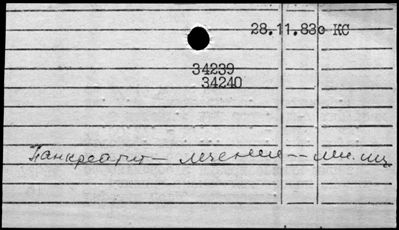 28.11.83о КС
34239
34240
Панкреатит — лечение --